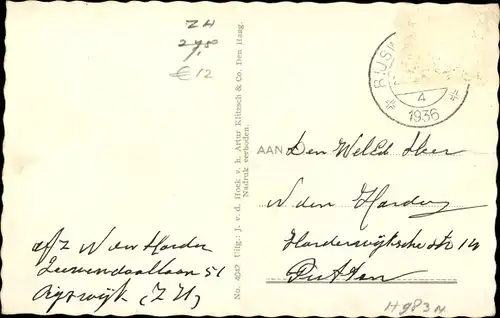 ZH
29,50
€12
RIJSW
4
1936
No. 4242 Uitg. J. v. d. Hoek v. h. Artur Klitzsch & Co. Den Haag.
Nadruk verboden.
AAN Den WelEd Heer
W den Harder
Harderwijksche str 14
Putten
afz W den Harder
Leeuwendaallaan 51
Rijswijk (ZH)
H983N